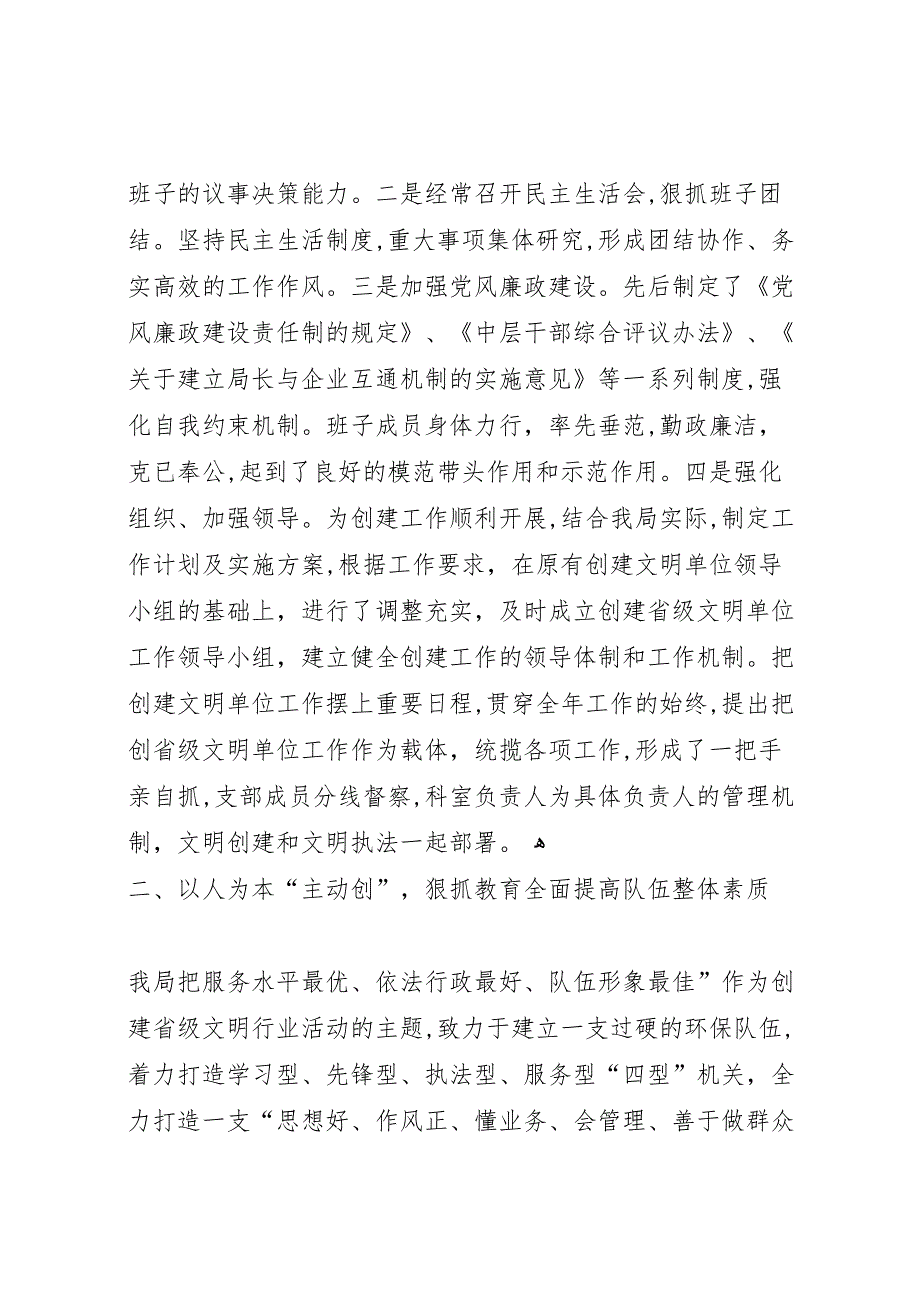 班子的议事决策能力。二是经常召开民主生活会,狠抓班子团
结。坚持民主生活制度,重大事项集体研究,形成团结协作、务
实高效的工作作风。三是加强党风廉政建设。先后制定了《党
风廉政建设责任制的规定》、《中层干部综合评议办法》、《
关于建立局长与企业互通机制的实施意见》等一系列制度,强
化自我约束机制。班子成员身体力行，率先垂范,勤政廉洁，
克已奉公,起到了良好的模范带头作用和示范作用。四是强化
组织、加强领导。为创建工作顺利开展,结合我局实际,制定工
作计划及实施方案,根据工作要求，在原有创建文明单位领导
小组的基础上，进行了调整充实，及时成立创建省级文明单位
工作领导小组，建立健全创建工作的领导体制和工作机制。把
创建文明单位工作摆上重要日程,贯穿全年工作的始终,提出把
创省级文明单位工作作为载体，统揽各项工作,形成了一把手
亲自抓,支部成员分线督察,科室负责人为具体负责人的管理机
制，文明创建和文明执法一起部署。 ﻫ
二、以人为本“主动创”，狠抓教育全面提高队伍整体素质
我局把服务水平最优、依法行政最好、队伍形象最佳”作为创
建省级文明行业活动的主题,致力于建立一支过硬的环保队伍,
着力打造学习型、先锋型、执法型、服务型“四型”机关，全
力打造一支“思想好、作风正、懂业务、会管理、善于做群众